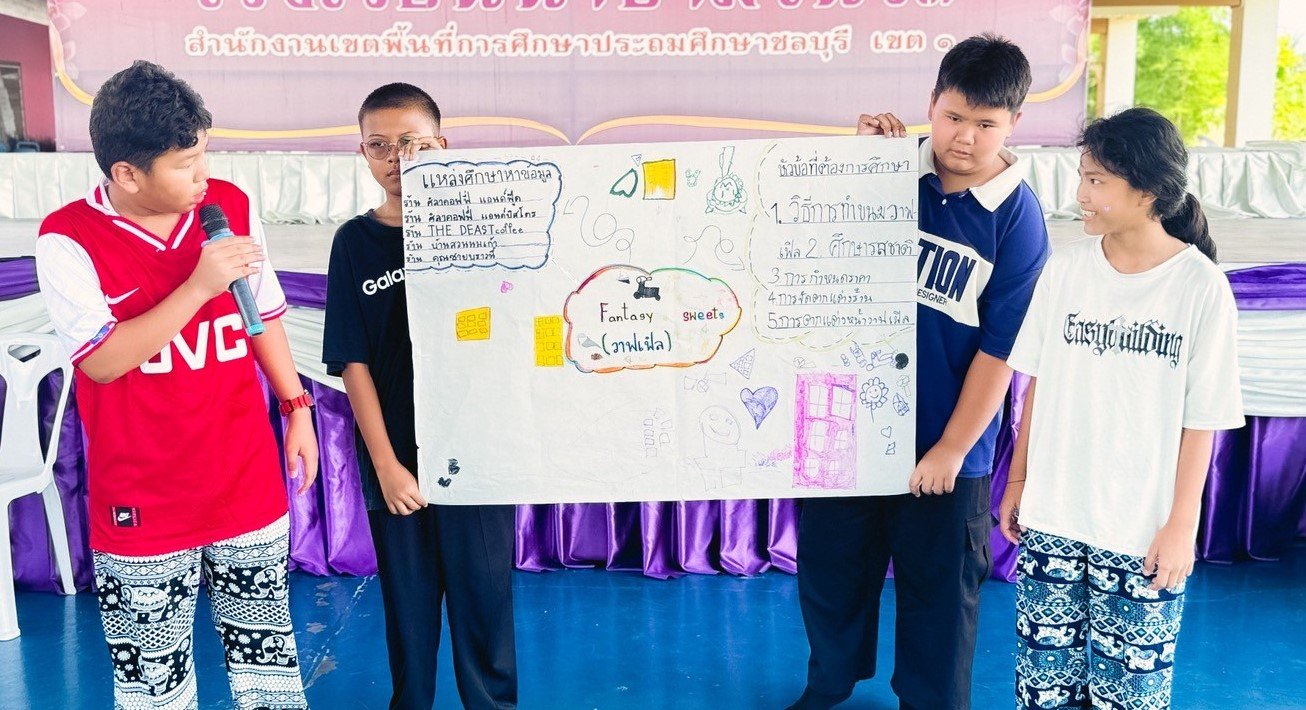 สำนักงานเขตพื้นที่การศึกษาประถมศึกษาชลบุรี เขต ๑
แหล่งศึกษาหาข้อมูล
ร้าน ศิลาคอฟฟี่ แอนด์ฟู๊ด
ร้าน ศิลาคอฟฟี่ แอนด์บิสโตร
ร้าน THE DEAST coffee
ร้าน บ้านสวนนมเก้า
ร้าน
Fantasy sweets
(วาฟเฟิล)
หัวข้อที่ต้องการศึกษา
1. วิธีการทำขนมวาฟ
เฟิล 2. ศึกษารสชาติ
3 การกำหนดราคา
4 การจัดตกแต่งร้าน
5 การตกแต่งหน้าวาฟเฟิล
OVC
Galax
TION
DESIGNER
Easybuilding